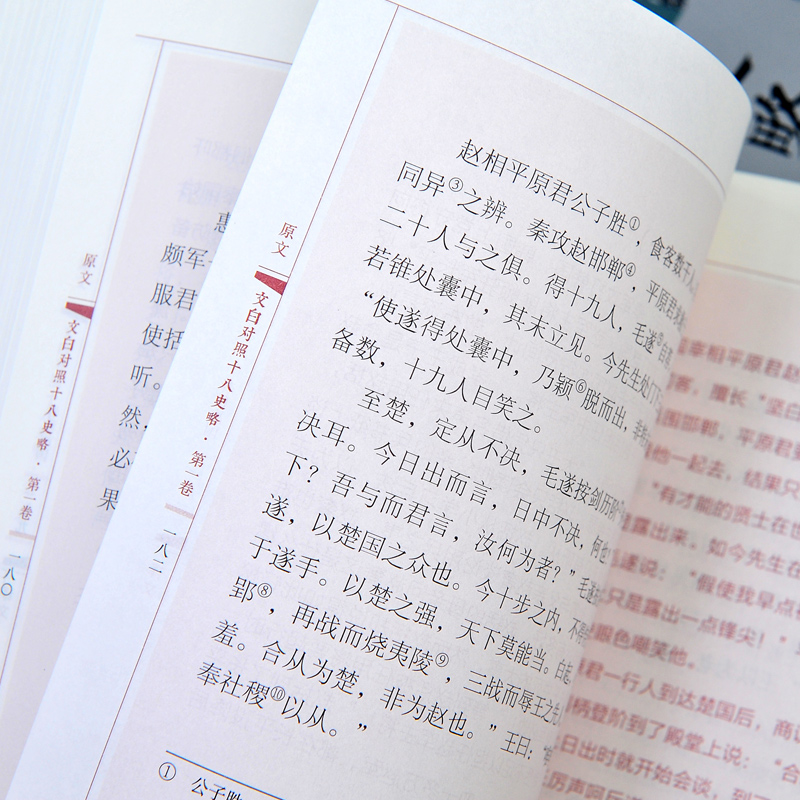 略
原文
颇军
服君
使括
听。
然，
必
果
文白对照十八史略·第一卷
一八〇
原文
文白对照十八史略·第一卷
一八二
赵相平原君公子胜①，食客数千人
同异③之辨。秦攻赵邯郸④，平原君求
二十人与之俱。得十九人，毛遂⑤自
若锥处囊中，其末立见。今先生处门下
“使遂得处囊中，乃颖⑥脱而出，
备数，十九人目笑之。
至楚，定从不决，毛遂按剑历阶
决耳。今日出而言，日中不决，何也
下？吾与而君言，汝何为者？”毛遂
遂，以楚国之众也。今十步之内，不得
于遂手。以楚之强，天下莫能当。白起
郢⑧，再战而烧夷陵⑨，三战而辱王之先
羞。合从为楚，非为赵也。”王曰：“
奉社稷⑩以从。”
① 公子胜
宰相平原君赵
客，擅长“坚白
围邯郸，平原君
他一起去，结果只
“有才能的贤士在世
露出来，如今先生在
遂说：“假使我早点
只是露出一点锋尖！”
眼色嘲笑他。
君一行人到达楚国后，商
柄登阶到了殿堂上说：“合
日出时就开始会谈，到
厉声回